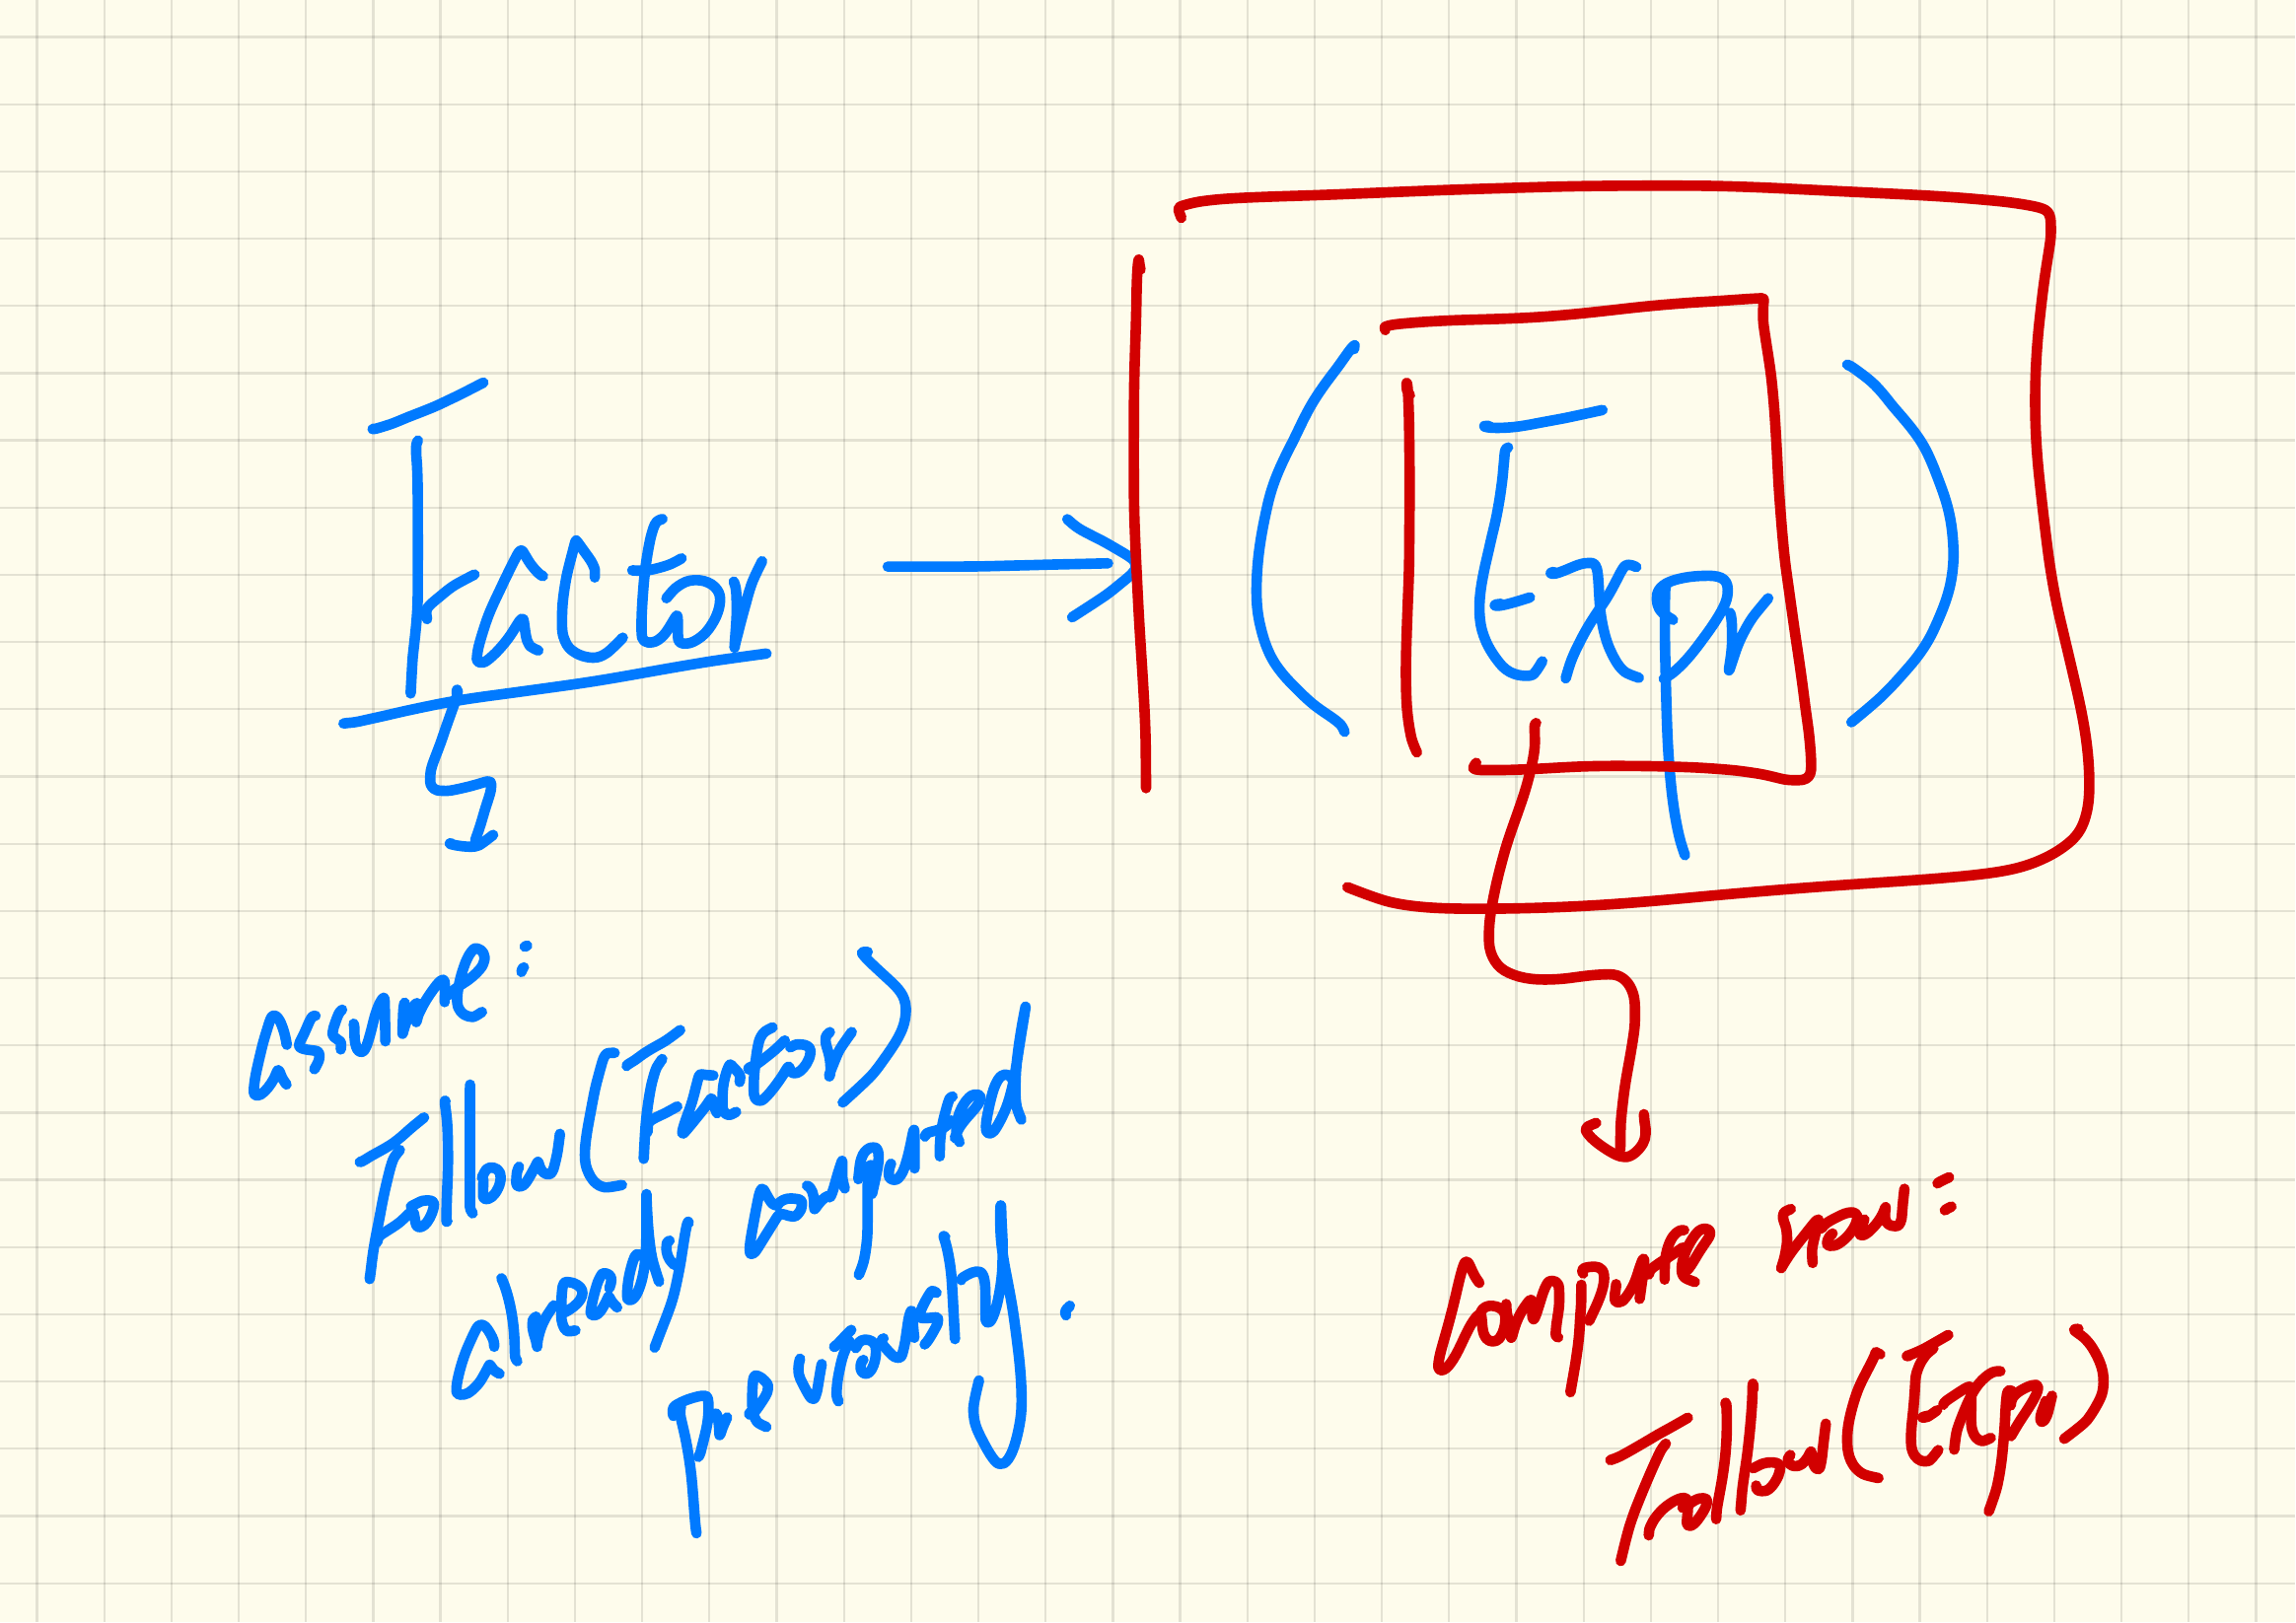 Factor → ( Expr )
assume:
Follow(Factor)
already computed
previously.
Compute now:
Follow(Expr)